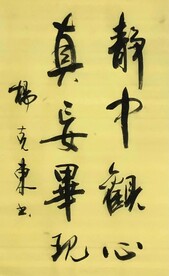 静中觀心
真妄畢現
楊克東书